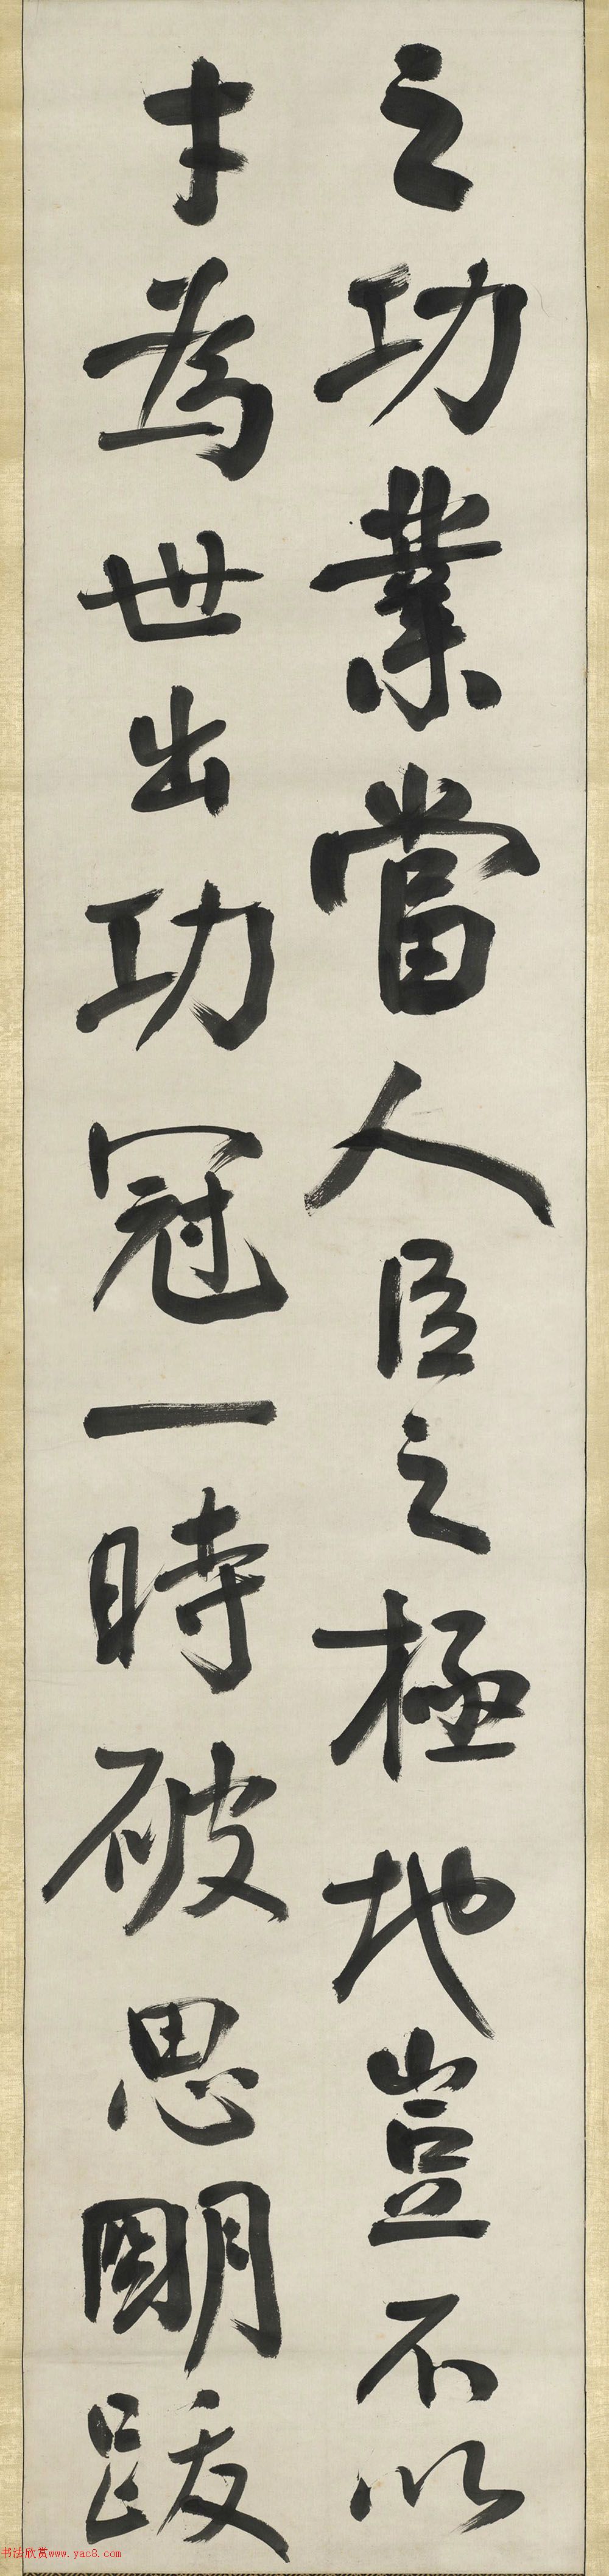 之功業當人臣之極地豈不以
才為世出功冠一時破思明跋
书法欣赏www.yac8.com